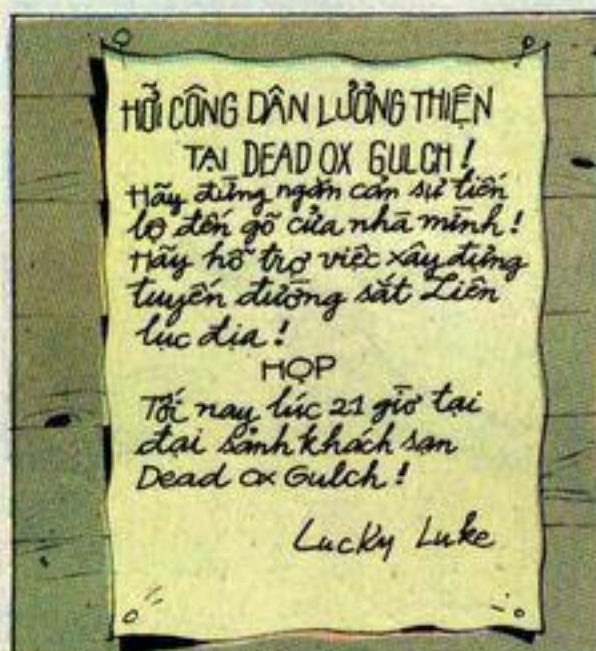 HỠI CÔNG DÂN LƯƠNG THIỆN
TẠI DEAD OX GULCH!
Hãy đừng ngăn cản sự tiến
bộ đến gõ cửa nhà mình!
Hãy hỗ trợ việc xây dựng
tuyến đường sắt Liên
lục địa!
HỌP
Tối nay lúc 21 giờ tại
đại sảnh khách sạn
Dead ox Gulch!
Lucky Luke